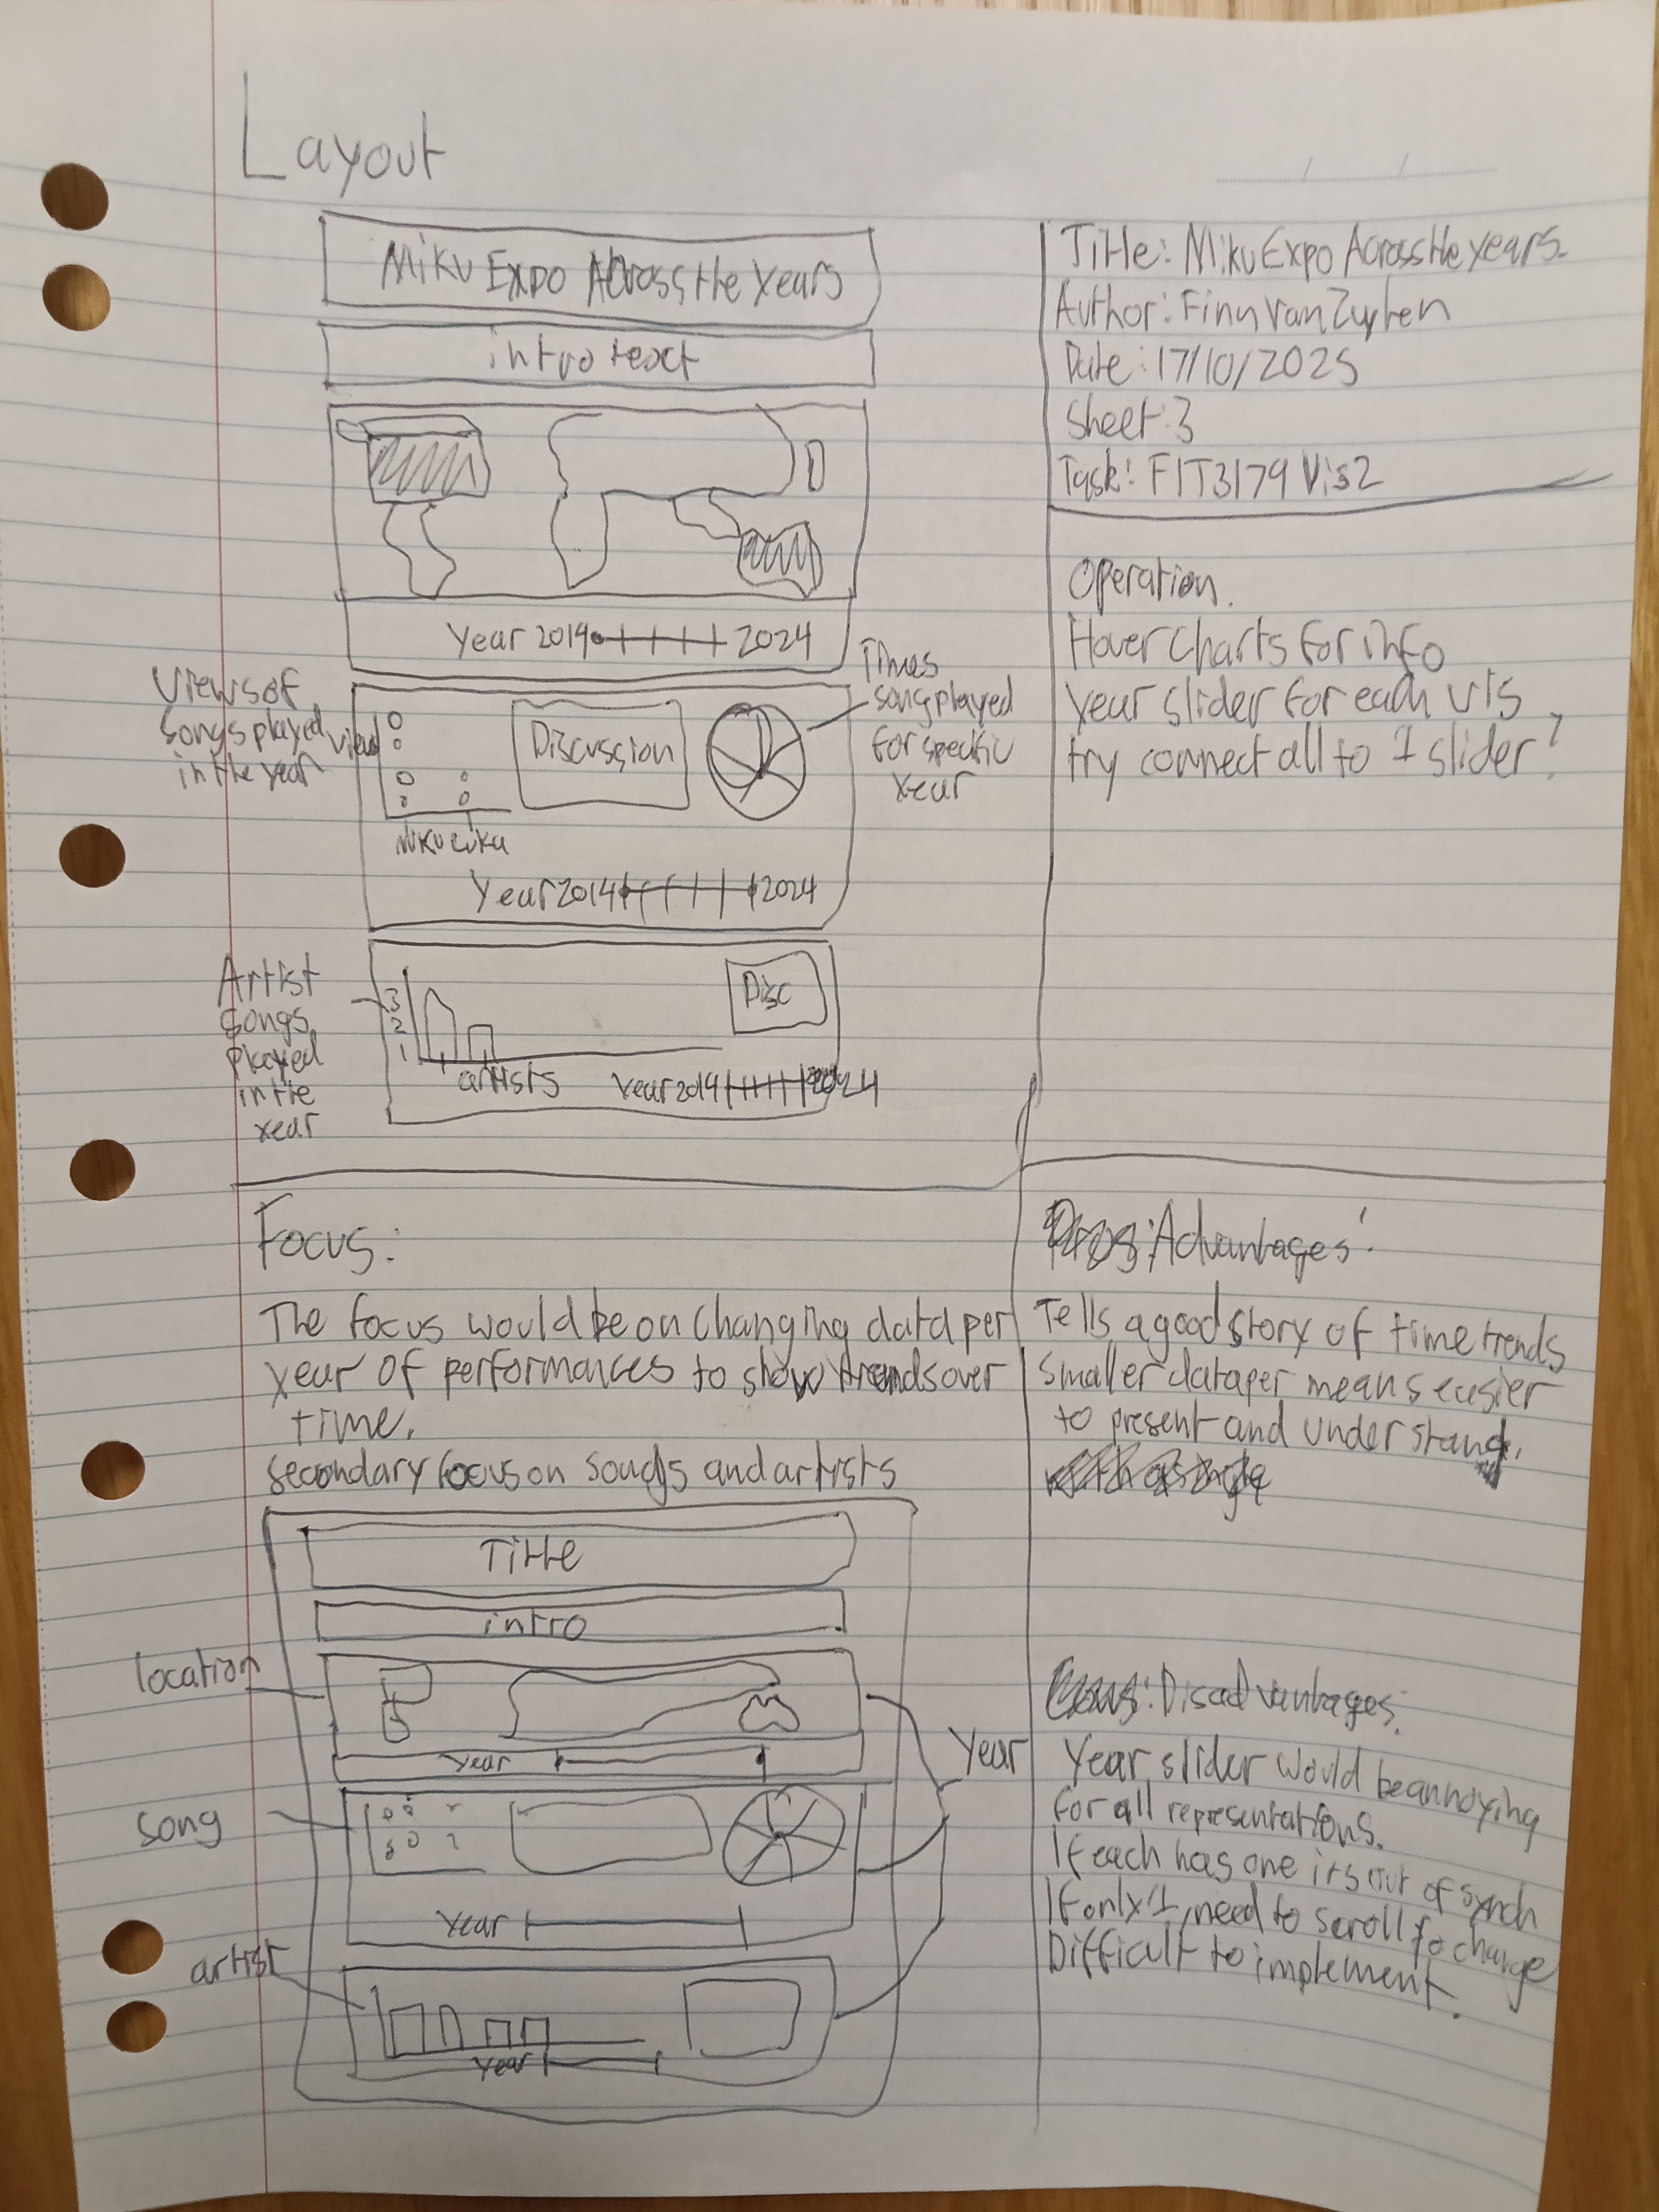 Layout
Miku Expo Across the Years
intro text
Year 2014 2024
Views of
songs played
in the year
view
Miku Luka
Discussion
Times
song played
for specific
year
Year 2014 2024
Artist
songs
played
in the
year
3
2
1
artists
Disc
Year 2014 2024
Title: Miku Expo Across the years.
Author: Finn Van Zuyten
Date: 17/10/2025
Sheet: 3
Task: FIT3179 Vis2
Operation.
Hover Charts for info
year slider for each vis
try connect all to 1 slider?
Focus:
The focus would be on changing data per
year of performances to show trends over
time.
secondary focus on songs and artists
Title
intro
location
Year
song
Year
artist
Year
Year
Advantages:
Tells a good story of time trends
smaller data per means easier
to present and understand.
Disadvantages:
Year slider would be annoying
for all representations.
If each has one its out of synch
If only 1, need to scroll to change
Difficult to implement.